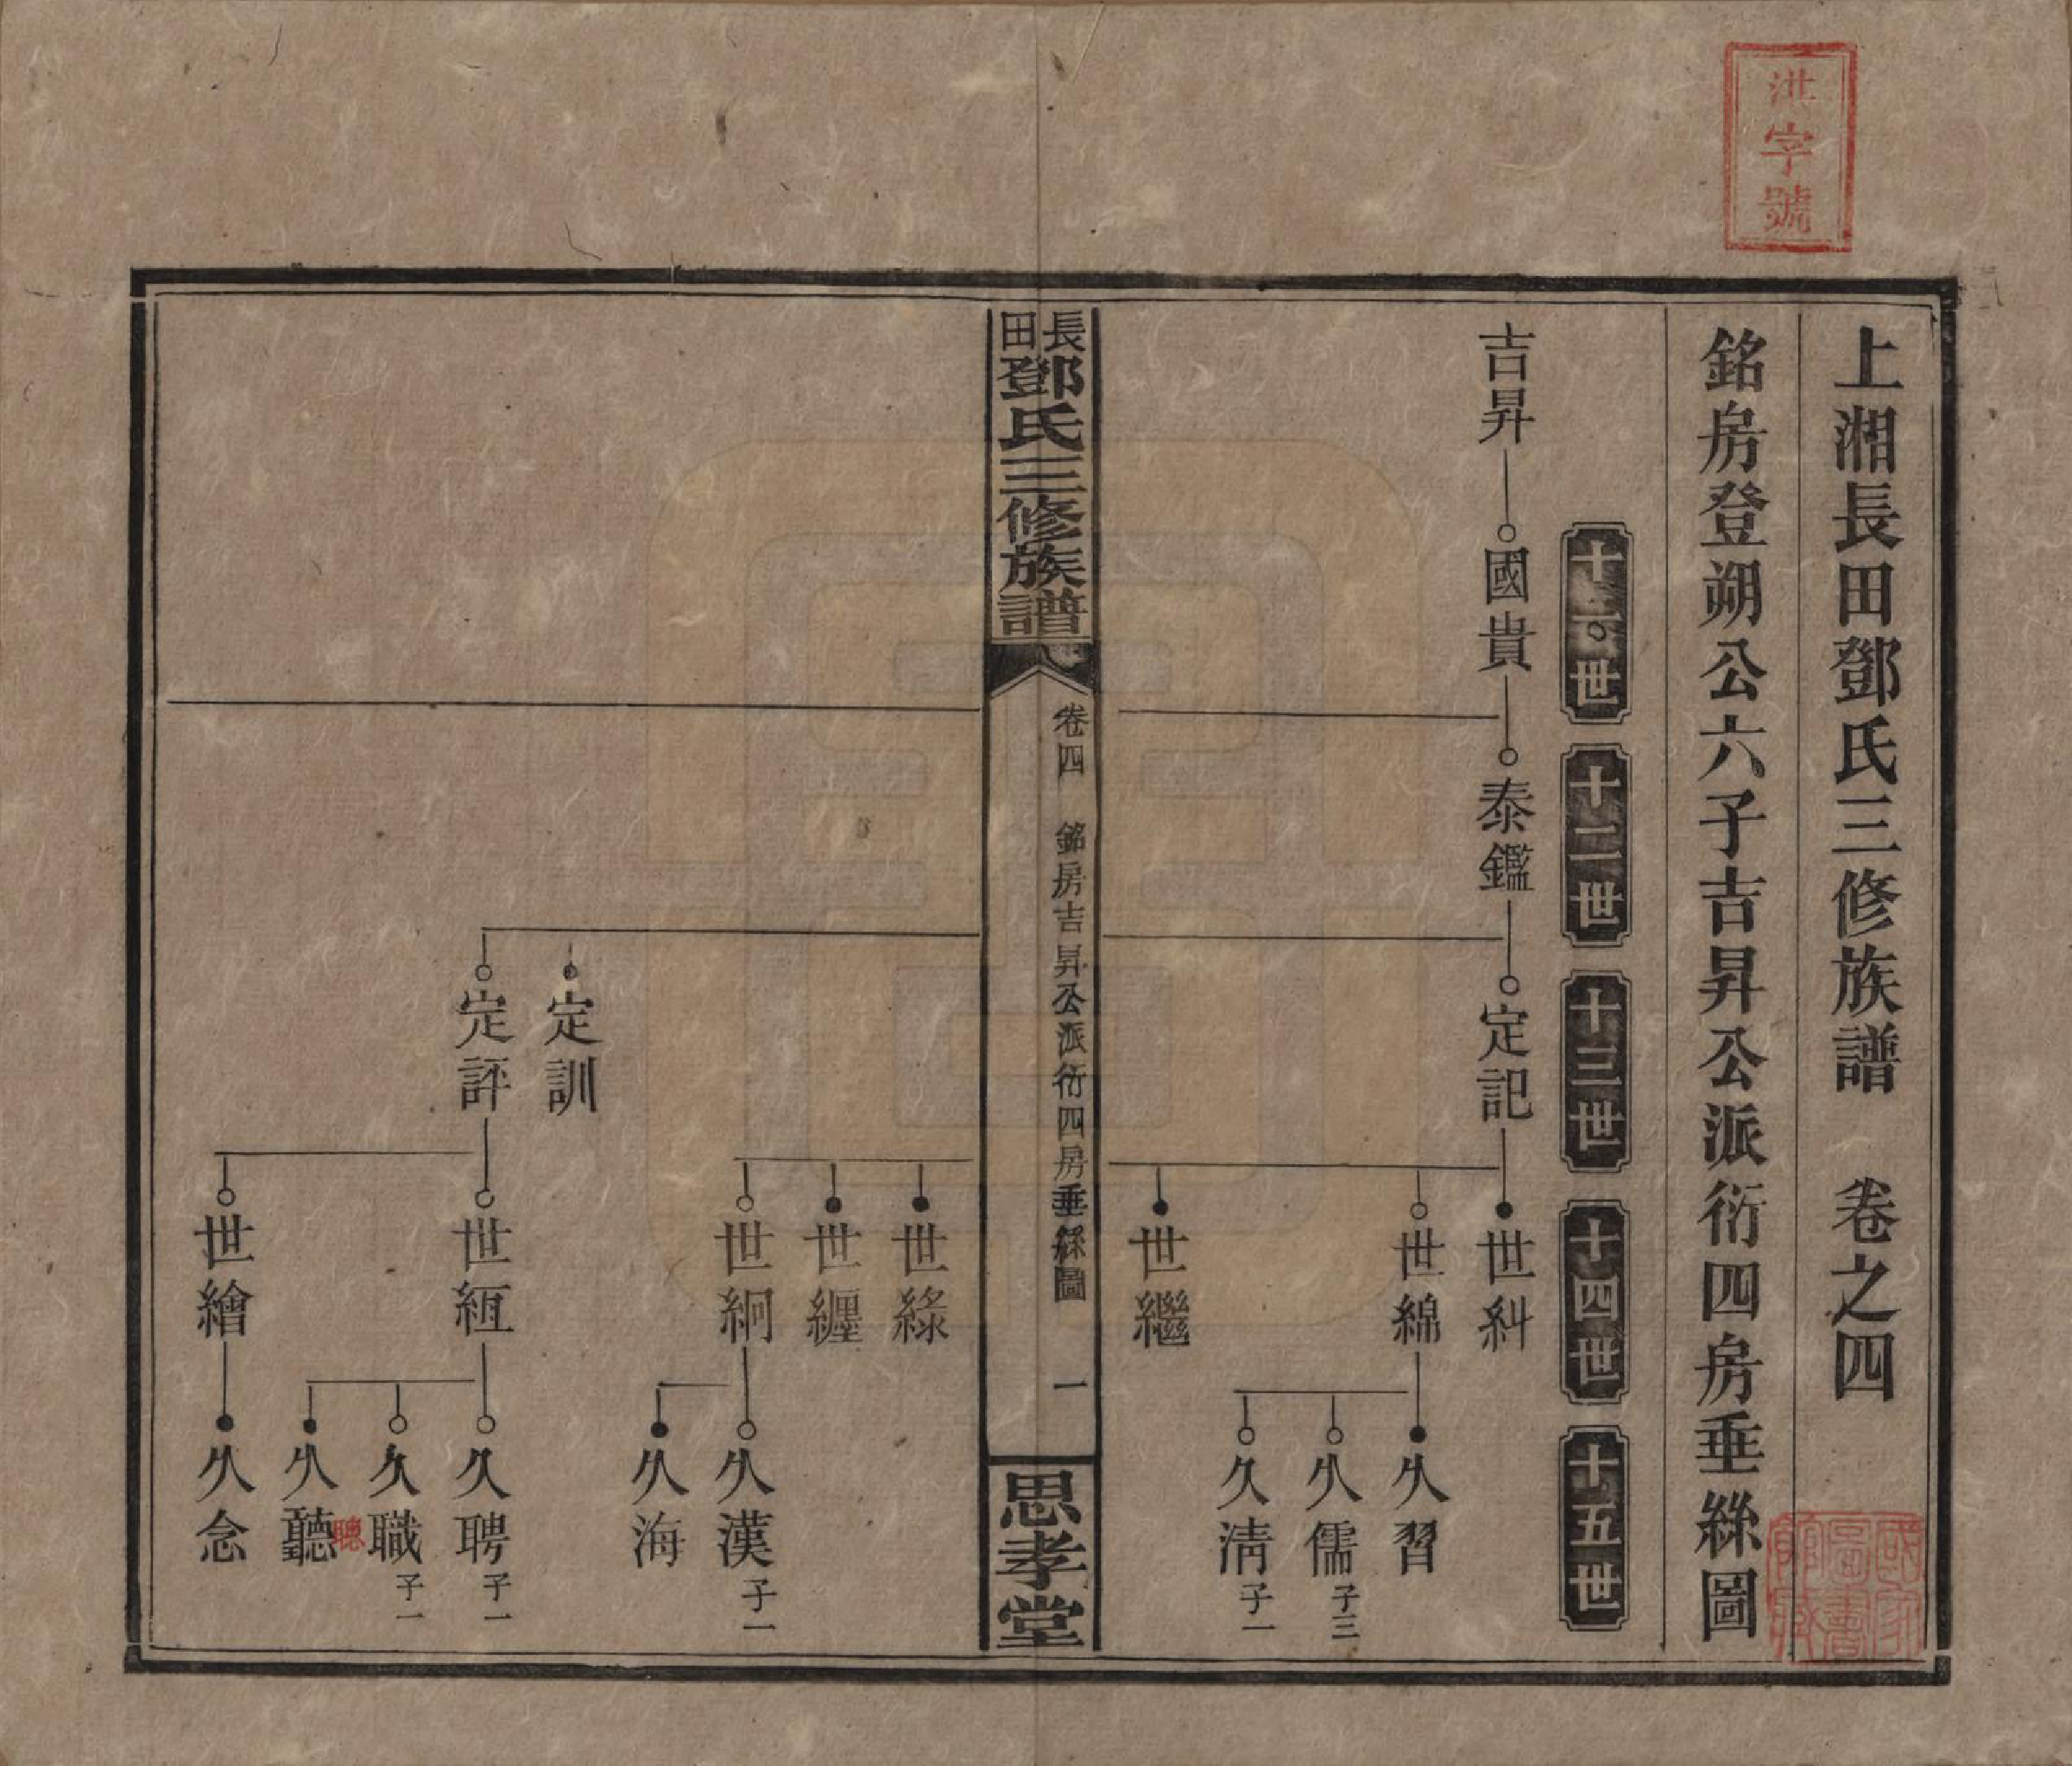 洪字號
上湘長田鄧氏三修族譜　卷之四
銘房登朔公六子吉昇公派衍四房垂絲圖
十一世
十二世
十三世
十四世
十五世
吉昇
國貴
泰鑑
定記
世糾
世綿
久習
久儒 子三
久清 子一
世繼
長田鄧氏三修族譜
卷四　銘房吉昇公派衍四房垂絲圖　一
思孝堂
世綠
世纏
世絅
久漢 子一
久海
定訓
定評
世絚
久聘 子一
久職 子一
久聽
聰
世繪
久念